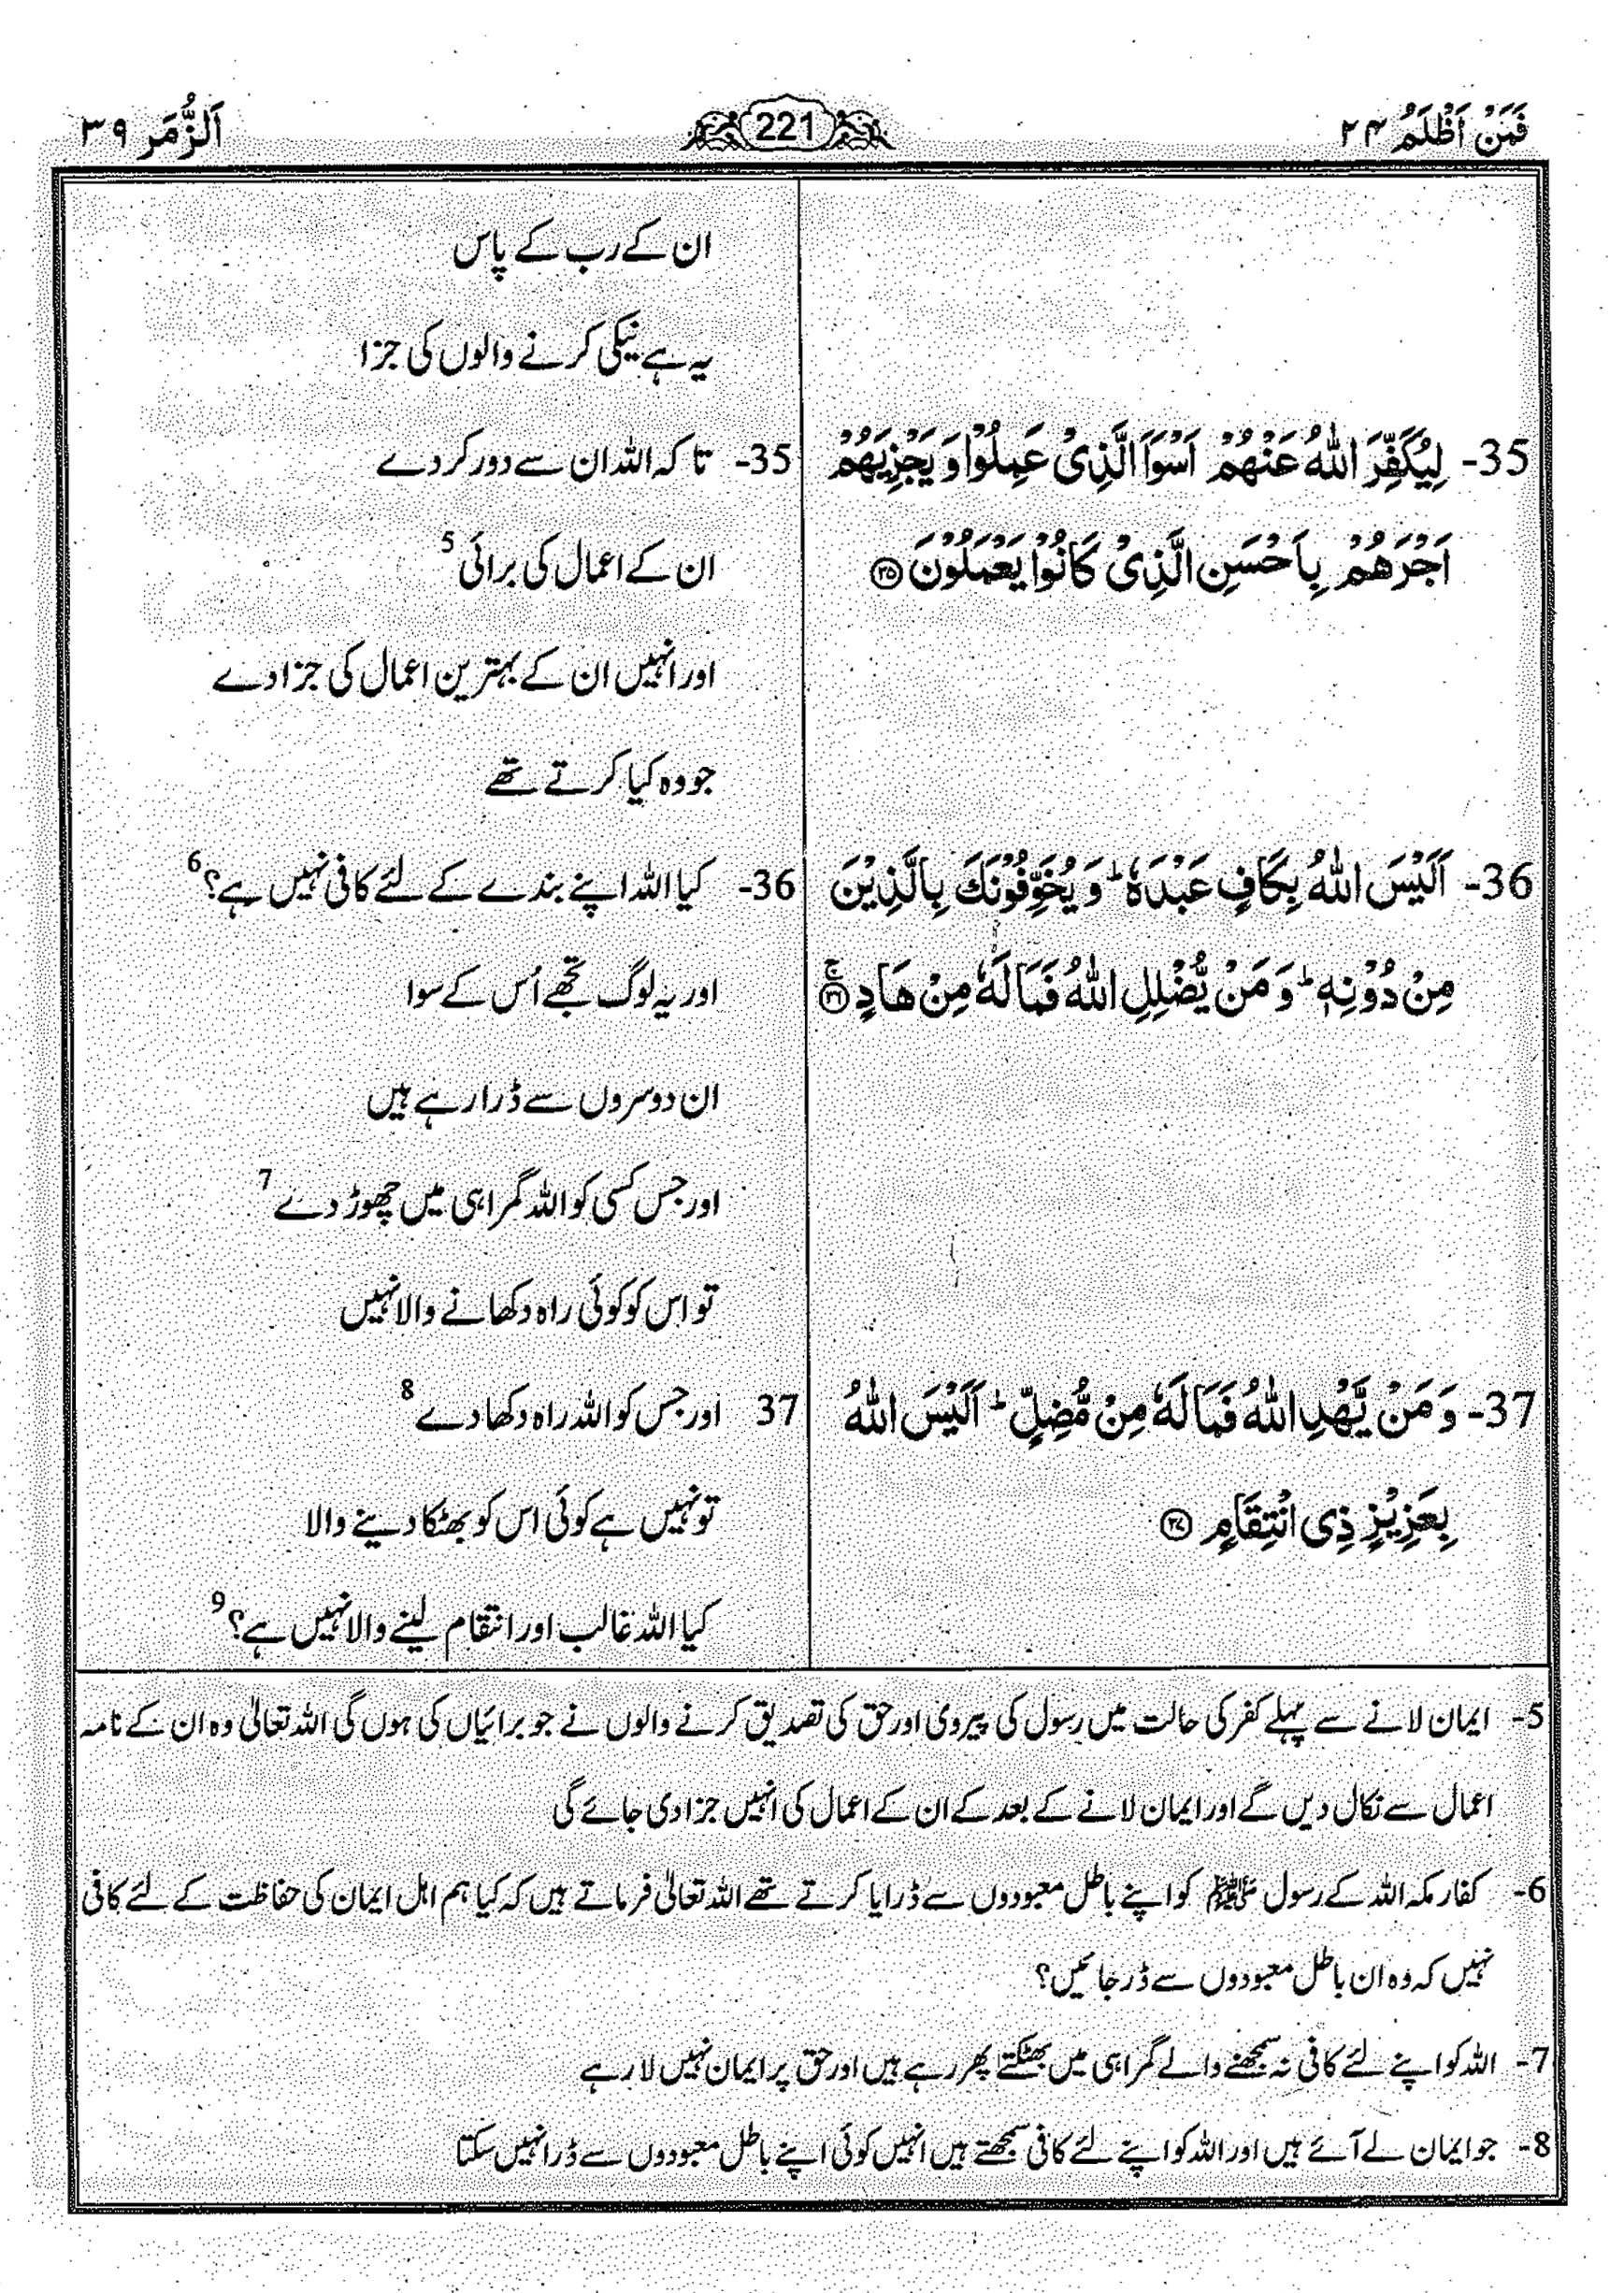 فَمَنْ اَظْلَمُ ۲۴
221
اَلزُّمَر ۳۹
ان کے رب کے پاس
یہ ہے نیکی کرنے والوں کی جزا
35- لِيُكَفِّرَ اللّٰهُ عَنْهُمْ اَسْوَاَ الَّذِیْ عَمِلُوْا وَ يَجْزِيَهُمْ
اَجْرَهُمْ بِاَحْسَنِ الَّذِیْ كَانُوْا يَعْمَلُوْنَ ۝۳۵
35- تا کہ اللہ ان سے دور کر دے
ان کے اعمال کی برائی 5
اور انہیں ان کے بہترین اعمال کی جزا دے
جو وہ کیا کرتے تھے
36- اَلَيْسَ اللّٰهُ بِكَافٍ عَبْدَهٗ ؕ وَ يُخَوِّفُوْنَكَ بِالَّذِيْنَ
مِنْ دُوْنِهٖ ؕ وَ مَنْ يُّضْلِلِ اللّٰهُ فَمَا لَهٗ مِنْ هَادٍ ۝۳۶ۚ
36- کیا اللہ اپنے بندے کے لئے کافی نہیں ہے؟ 6
اور یہ لوگ تجھے اُس کے سوا
ان دوسروں سے ڈرا رہے ہیں
اور جس کسی کو اللہ گمراہی میں چھوڑ دے 7
تو اس کو کوئی راہ دکھانے والا نہیں
37- وَ مَنْ يَّهْدِ اللّٰهُ فَمَا لَهٗ مِنْ مُّضِلٍّ ؕ اَلَيْسَ اللّٰهُ
بِعَزِيْزٍ ذِی انْتِقَامٍ ۝۳۷
37 اور جس کو اللہ راہ دکھا دے 8
تو نہیں ہے کوئی اس کو بھٹکا دینے والا
کیا اللہ غالب اور انتقام لینے والا نہیں ہے؟ 9
5- ایمان لانے سے پہلے کفر کی حالت میں رسول کی پیروی اور حق کی تصدیق کرنے والوں نے جو برائیاں کی ہوں گی اللہ تعالیٰ وہ ان کے نامہ
اعمال سے نکال دیں گے اور ایمان لانے کے بعد کے ان کے اعمال کی انہیں جزا دی جائے گی
6- کفار مکہ اللہ کے رسول ﷺ کو اپنے باطل معبودوں سے ڈرایا کرتے تھے اللہ تعالیٰ فرماتے ہیں کہ کیا ہم اہل ایمان کی حفاظت کے لئے کافی
نہیں کہ وہ ان باطل معبودوں سے ڈر جائیں؟
7- اللہ کو اپنے لئے کافی نہ سمجھنے والے گمراہی میں بھٹکتے پھر رہے ہیں اور حق پر ایمان نہیں لا رہے
8- جو ایمان لے آئے ہیں اور اللہ کو اپنے لئے کافی سمجھتے ہیں انہیں کوئی اپنے باطل معبودوں سے ڈرا نہیں سکتا